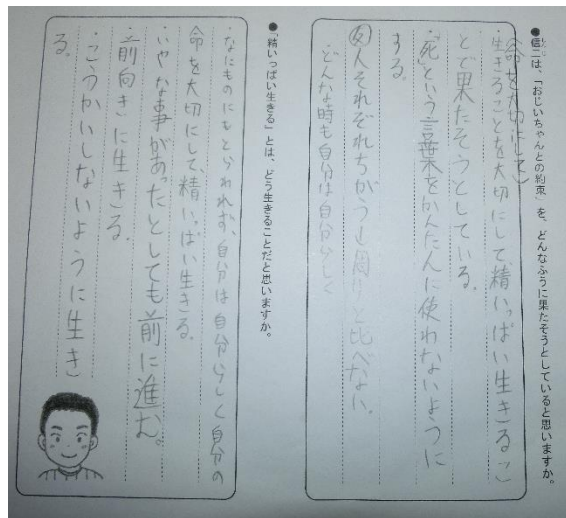 ●信二は、「おじいちゃんとの約束」を、どんなふうに果たそうとしていると思いますか。
命を大切にして
・生きることを大切にして、精いっぱい生きるこ
とで果たそうとしている。
・「死」という言葉をかんたんに使わないように
する。
友人それぞれちがう 周りと比べない。
どんな時も自分は自分らしく
●「精いっぱい生きる」とは、どう生きることだと思いますか。
・なにものにもとらわれず、自分は自分らしく自分の
命を大切にして、精いっぱい生きる。
・いやな事があったとしても前に進む。
前向きに生きる。
・こうかいしないように生き
る。